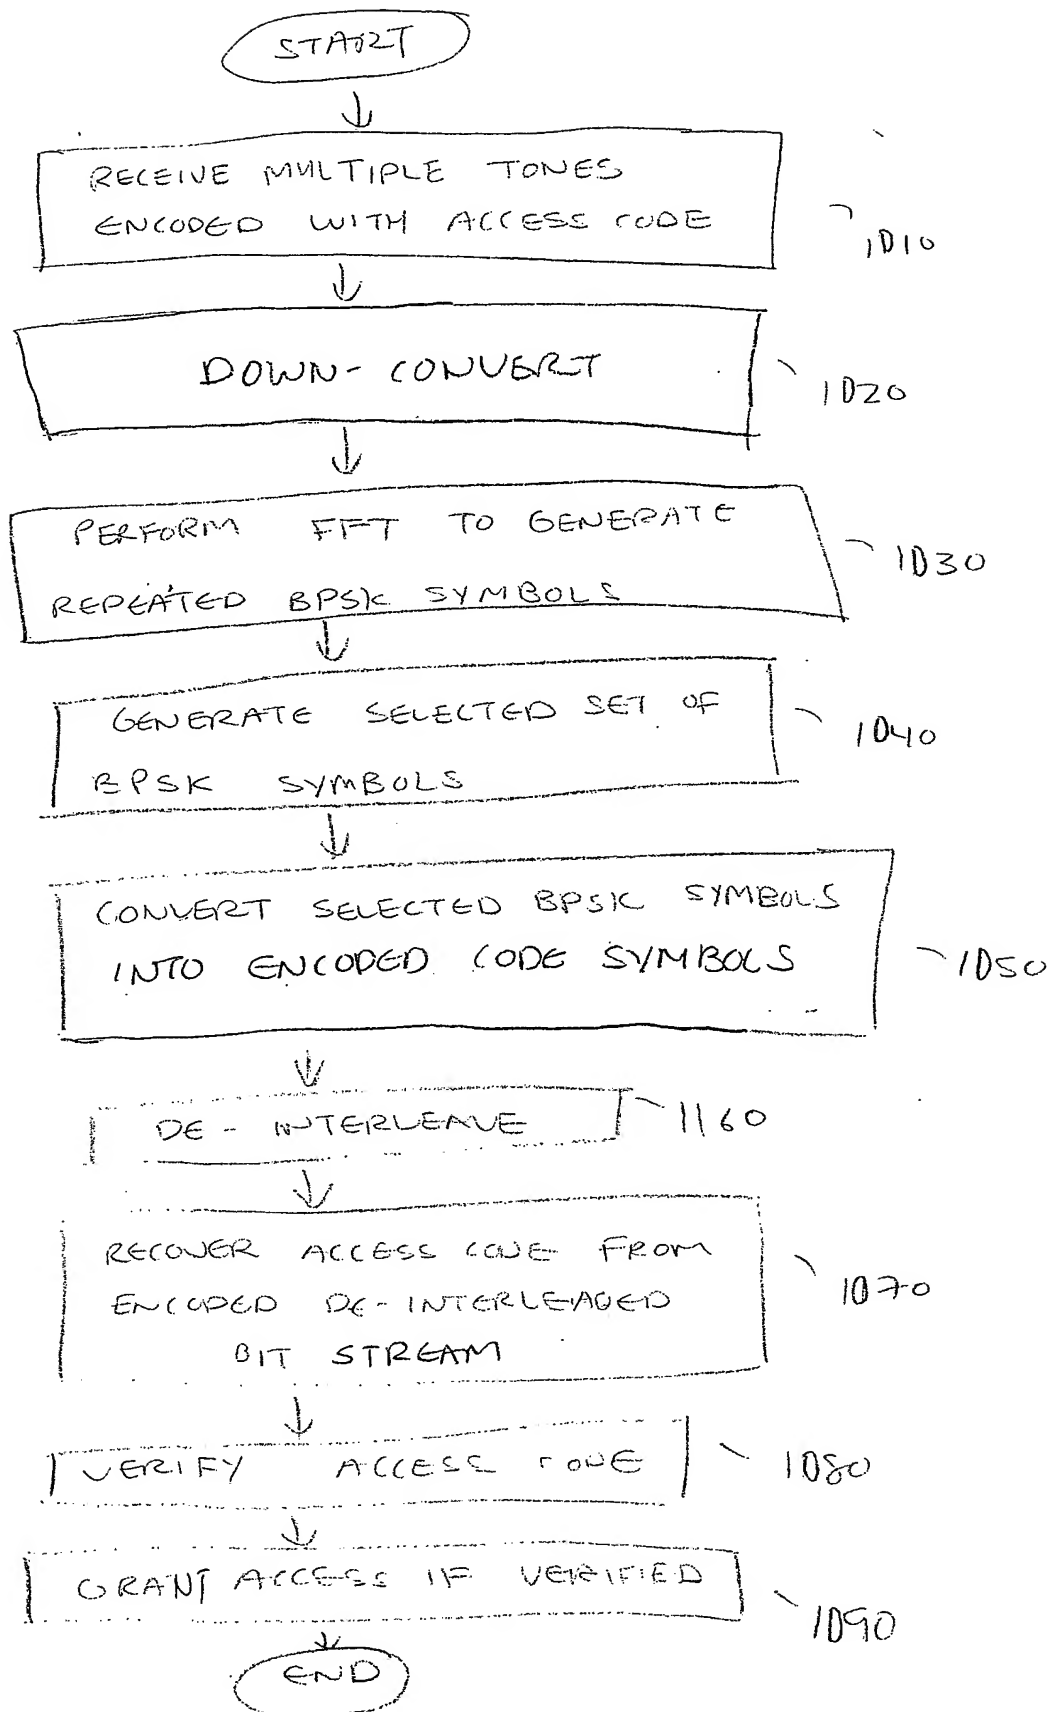 START
RECEIVE MULTIPLE TONES
ENCODED WITH ACCESS CODE
1010
DOWN-CONVERT
1020
PERFORM FFT TO GENERATE
REPEATED BPSK SYMBOLS
1030
GENERATE SELECTED SET OF
BPSK SYMBOLS
1040
CONVERT SELECTED BPSK SYMBOLS
INTO ENCODED CODE SYMBOLS
1050
DE-INTERLEAVE
1160
RECOVER ACCESS CODE FROM
ENCODED DE-INTERLEAVED
BIT STREAM
1070
VERIFY ACCESS CODE
1080
GRANT ACCESS IF VERIFIED
1090
END